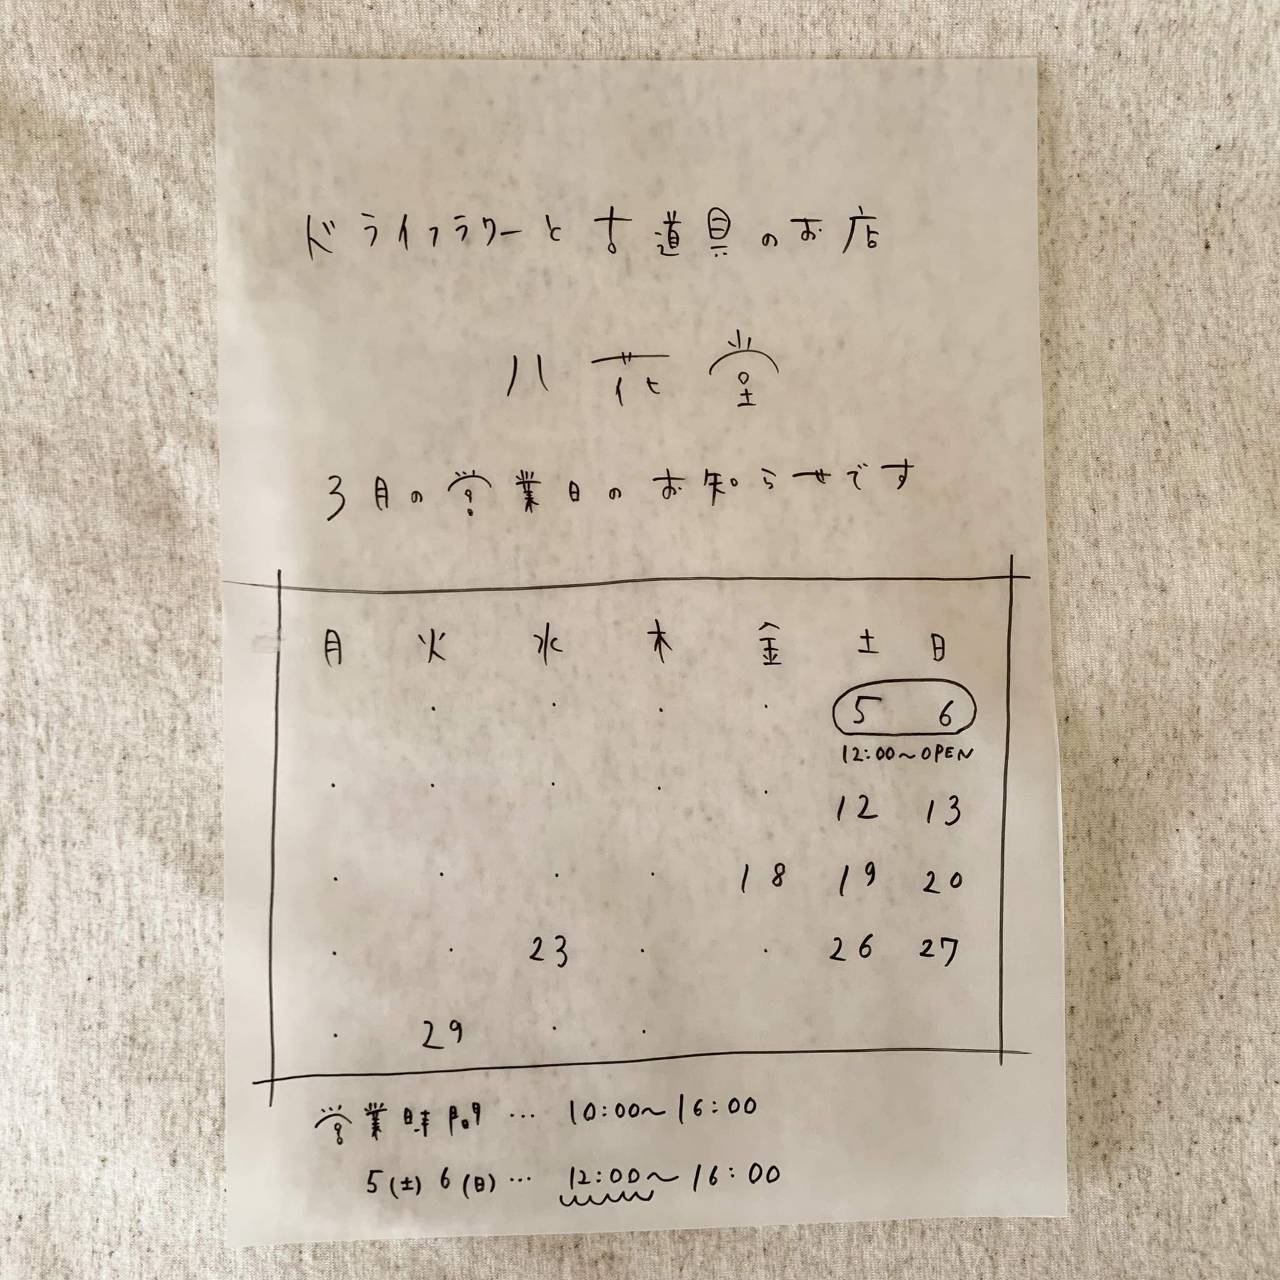 ドライフラワーと古道具のお店
八花堂
3月の営業日のお知らせです
月 火 水 木 金 土 日
・ ・ ・ ・ 5 6
12:00〜OPEN
・ ・ ・ ・ ・ 12 13
・ ・ ・ ・ 18 19 20
・ ・ 23 ・ ・ 26 27
・ 29 ・ ・
営業時間 … 10:00〜16:00
5(土) 6(日) … 12:00〜16:00